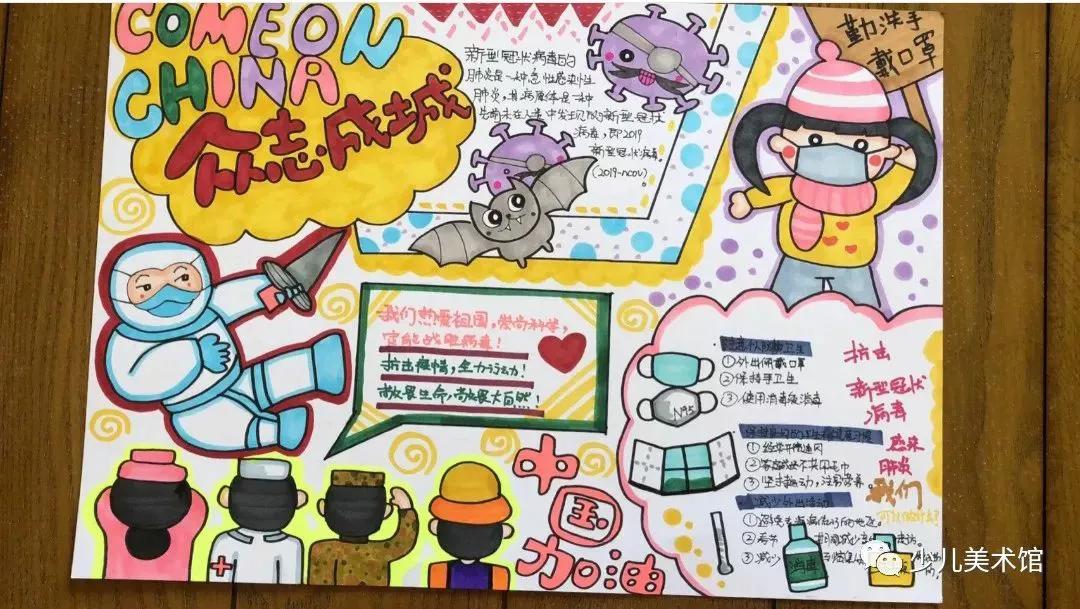 COME ON
CHINA
众志成城
新型冠状病毒的
肺炎是一种急性感染性
肺炎,其病原体是一种
先前未在人类中发现的新型冠状
病毒,即2019
新型冠状病毒。
(2019-ncov)
勤洗手
戴口罩
我们热爱祖国,崇尚科学,
定能战胜病毒!
抗击疫情,全力行动!
敬畏生命,敬畏大自然!
中国
加油
卫生
①外出佩戴口罩
②保持手卫生
③使用消毒液消毒
N95
抗击
新型冠状
病毒
感染
肺炎
我们
①经常开窗通风
②家庭成员不共用毛巾
③坚持运动,注意营养。
减少外出活动
①避免去疾病流行的地区。
②春节
③减少
消毒
少儿美术馆